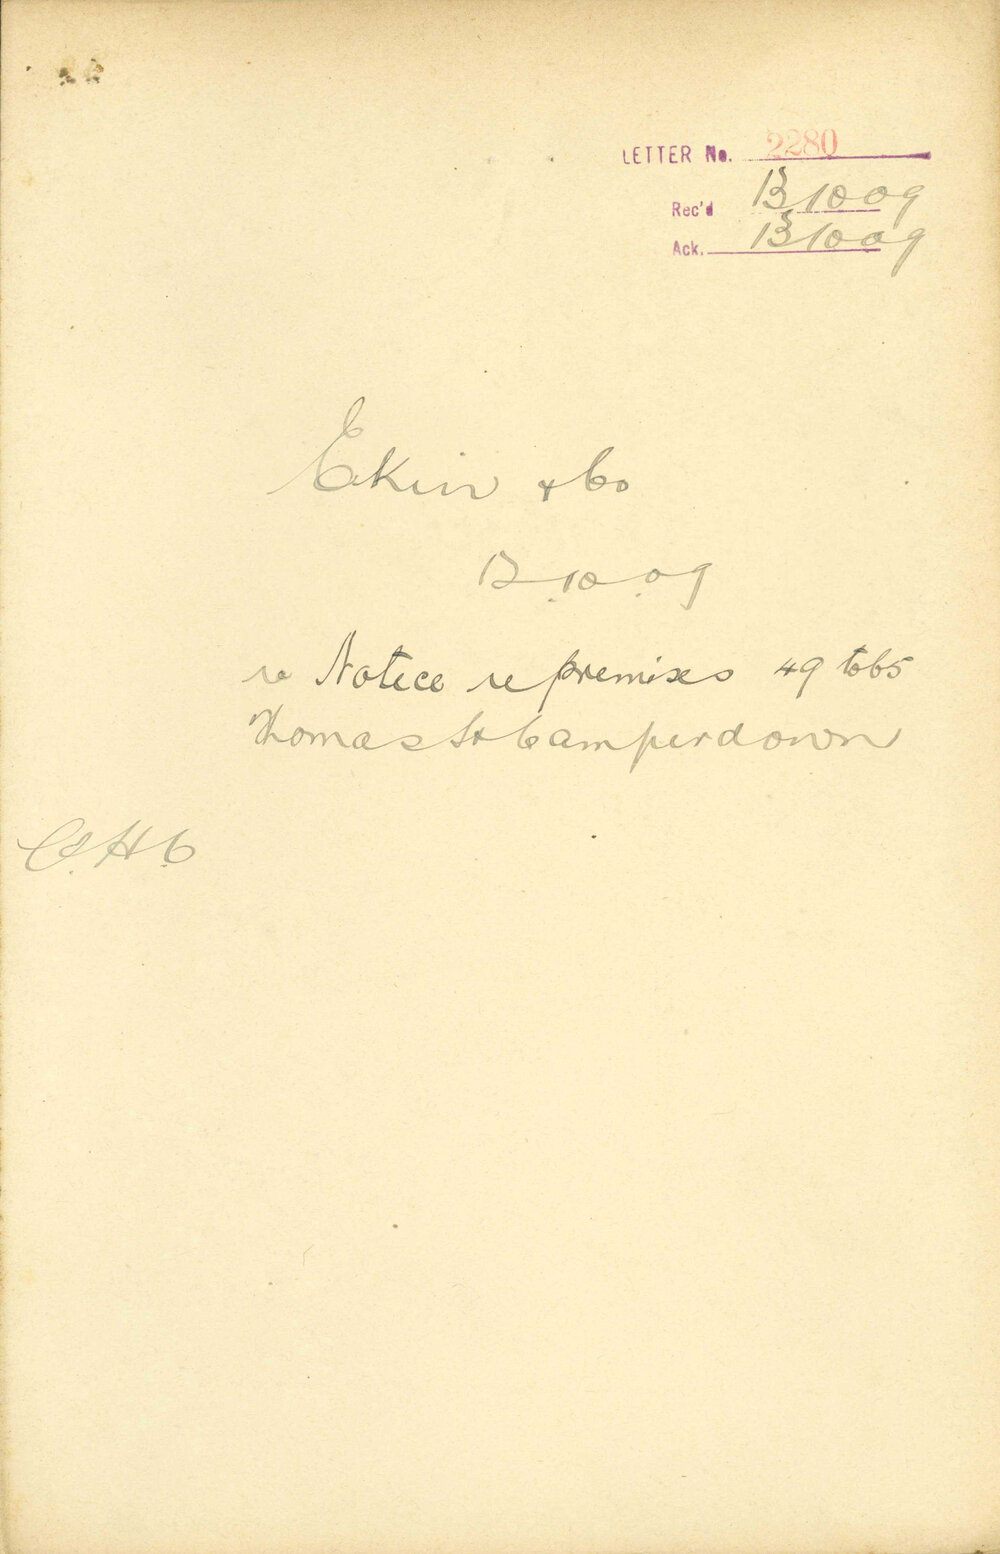 LETTER No. 2280
Rec'd 13 10 09
Ack. 13 10 09
Ekin & Co
12.10.09
re Notice re premises 49 to 65
Thomas St Camperdown
C.H.C